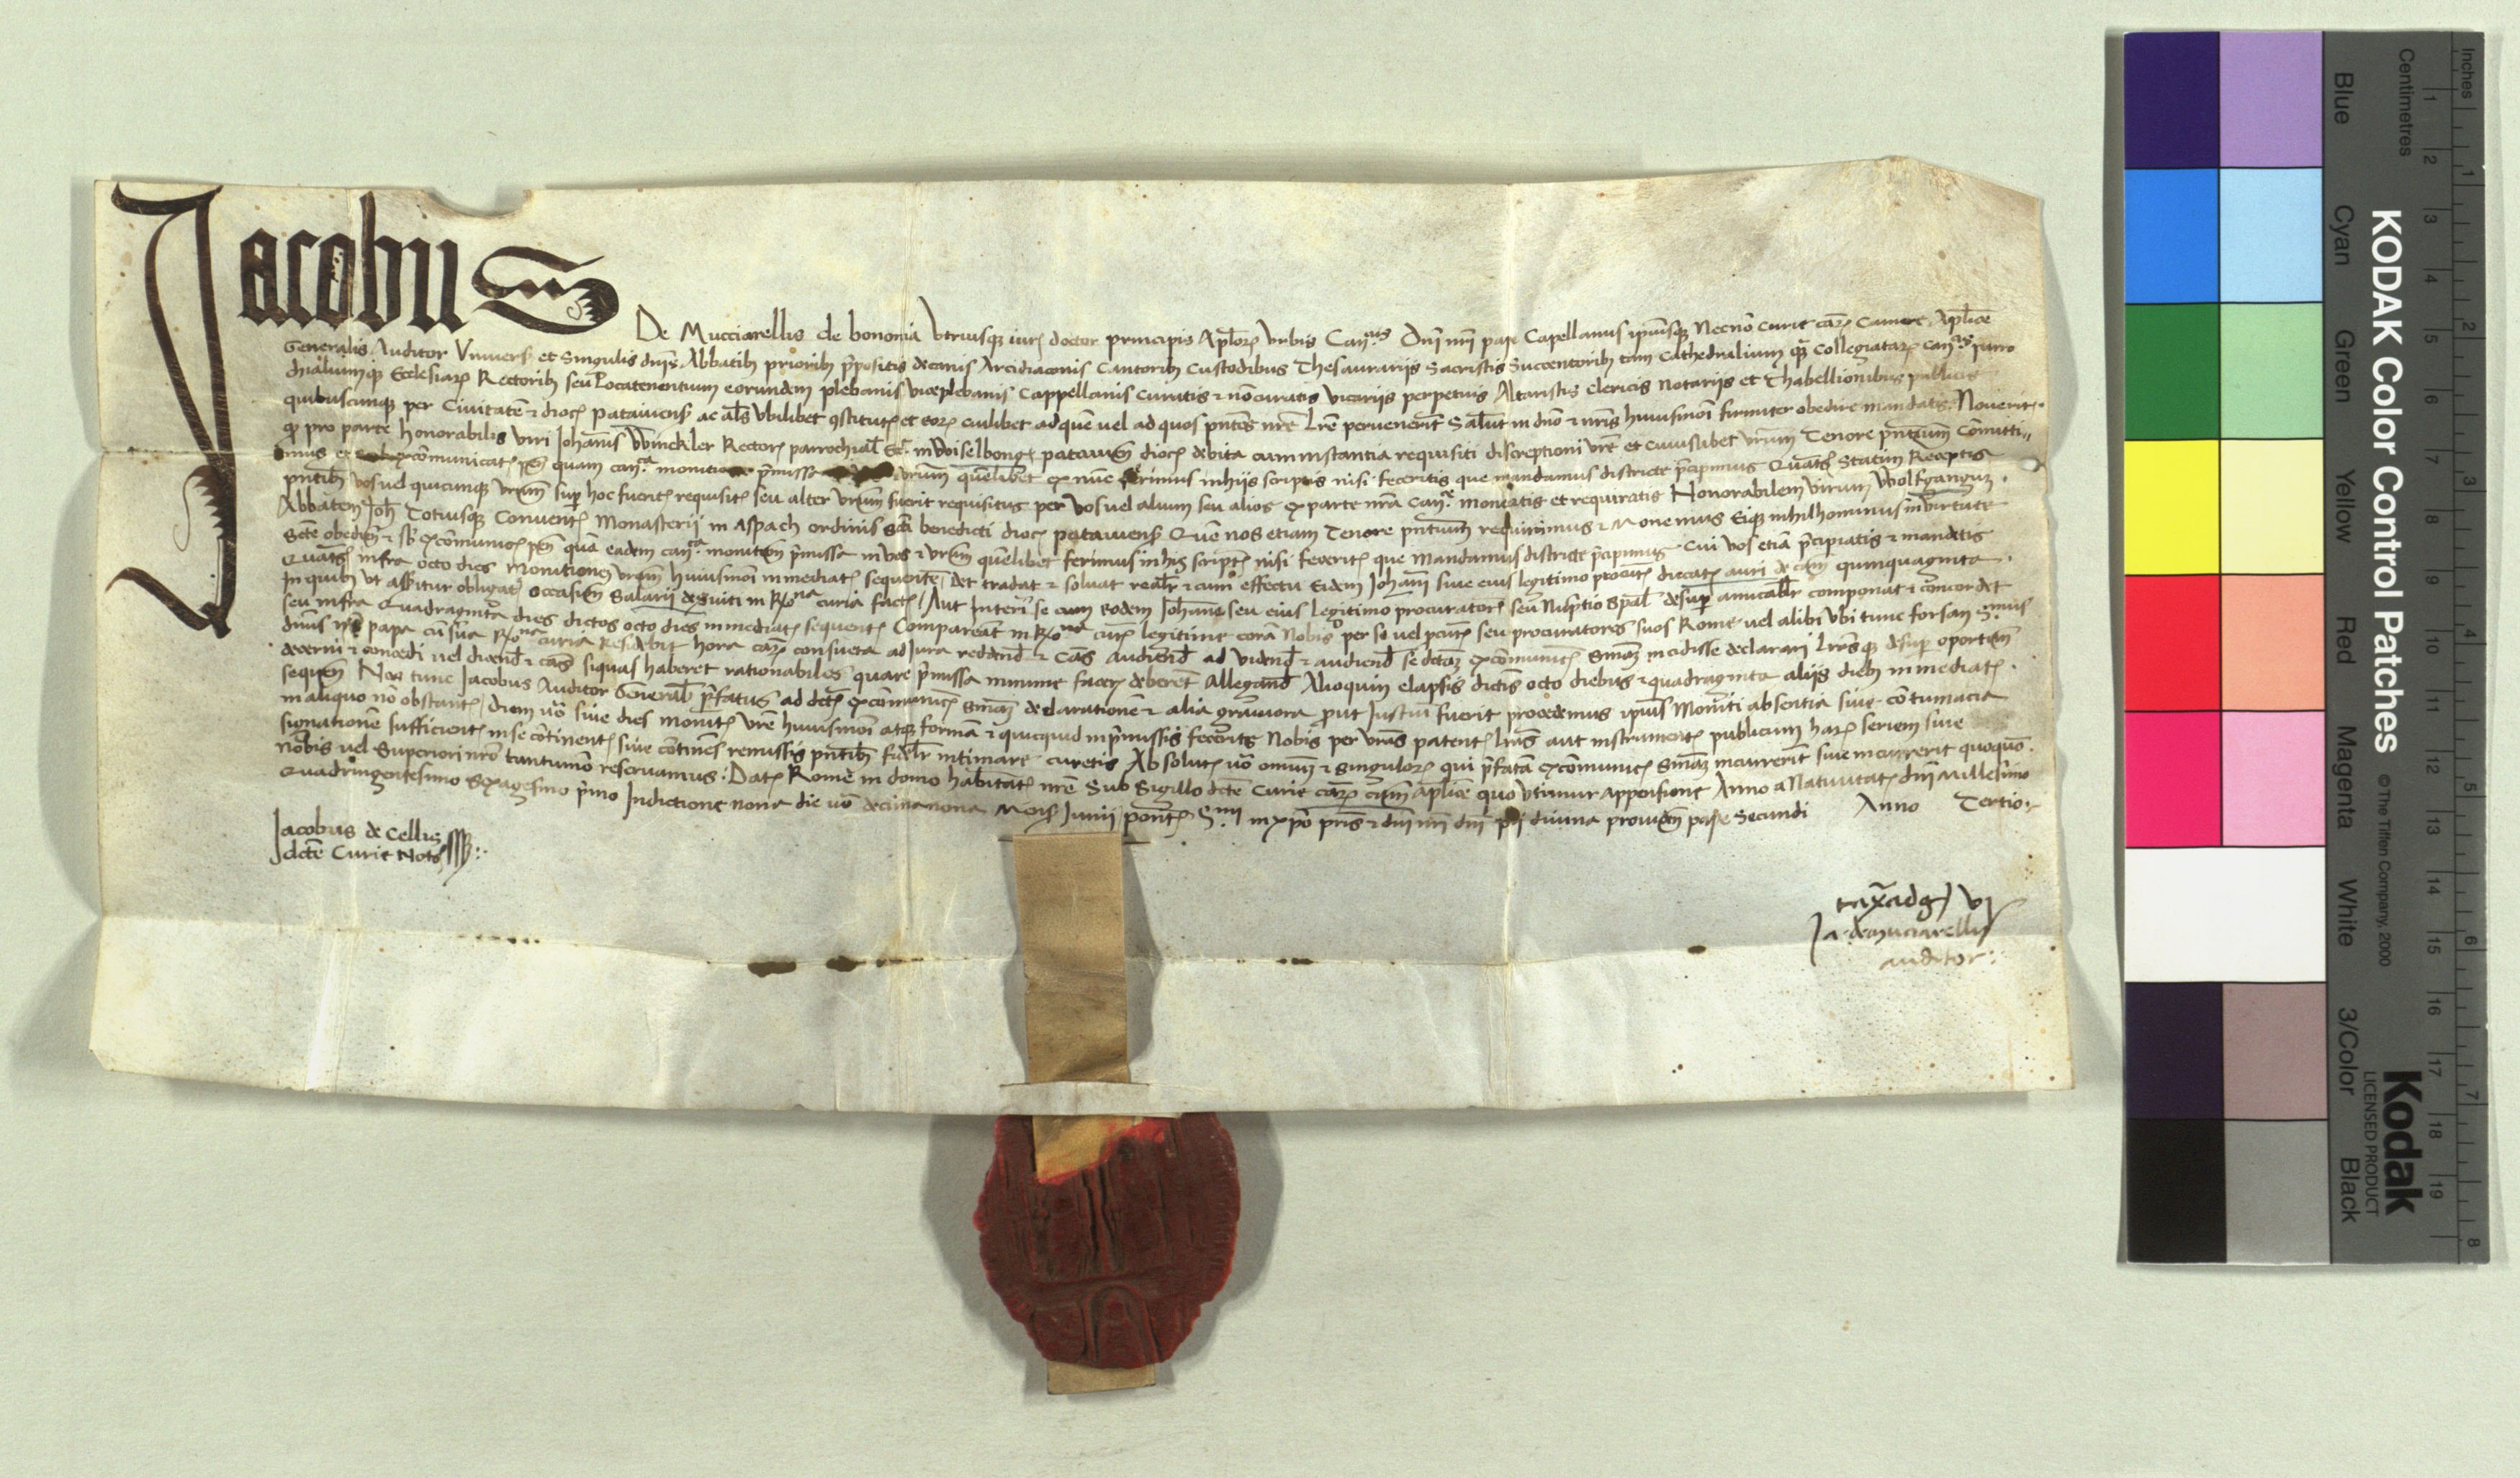 Jacobus
De Mucciarellis de bononia Utriusq iur doctor principis Aplor Urbis Can.cus Dni nri pape Capellanus ipiusq Necno curie car Camere Aplice
Generalis Auditor Univers et Singulis dnis Abbatib priorib ppositis decanis Arcidiaconis Cantorib Custodibus Thesaurariis Sacristis Succentorib tam Cathedralium qua Collegiatar can.cis parro
chialiumq Ecclesiar Rectorib seu Locatenentium eorundem plebanis viceplebanis Cappellanis Curatis & no curatis vicariis perpetuis Altaristis clericis Notariis et Thabellionibus publicis
quibuscunq per Civitate & dioc pataviens ac als Ubilibet 9stitut et eor cuilibet ad que vel ad quos pntes nre Lre pervenerit Salut in dno & nris huiusmoi firmiter obedire mandatis. Noverit
q pro parte honorabilis viri Johanis Winckler Rector parrochial Ec. in Woiselbong patavien dioc debita cum instantia requisiti discreptioni vre et cuiuslibet vrum Tenore pntium Comitti
mus et excomunicat pen quam can.ca monitione pmissa vrum quelibet ex nuc ferimus in hiis scriptis nisi feceritis que mandamus districte pcipimus Quats Statim Receptis
pntib vos vel quicunq vrum sup hoc fuerit requisit seu alter vrum fuerit requisitus per vos vel alium seu alios ex parte nra can.ce moneatis et requiratis Honorabilem virum Wolfgangum
Abbatem Joh Totiusq Convent Monasterii in Aspach ordinis sci benedicti dioc patavens Que nos etiam Tenore pntium requirimus & Monemus Eiq nihilhominus in virtute
Scte obedien & sb excomunic pen qua eadem can.ca monition pmissa in vos & vrum quelibet ferimus in his script nisi fecerit que mandamus districte pcipimus Cui vos etia pcipiatis & mandetis
Quats infra octo dies Monitione vram huiusmoi immediat sequente, Det tradat & solvat realr & cum effectu Eidem Johani sive eius legitimo procut ducat auri de cam quinquaginta
In quib ut asseritur obligat occasion Salarii deserviti in Ro.na curia fact, Aut Interi se cum eodem Johane seu eius legitimo procurator seu Nuptio Spal desup amicablr componat & concordet
seu infra Quadraginta dies dictos octo dies immediat sequent Compareat in Ro.na curia legitime cora Nobis per se vel pcut seu procuratores suos Rome vel alibi Ubi tunc forsan S.mus
dnus nr papa cu sua Ro.na curia Residebit hora car consueta ad Jura reddend & Cas Audiend ad vidend & audiend se dictam excomunic Sniam incidisse declarari Lrasq desup oportun
decerni & concedi vel dicend & cas siquas haberet rationabiles quare pmissa minime facer deberet Allegand Alioquin elapsis dictis octo diebus & quadraginta aliis dieb immediat
sequen Nos tunc Jacobus Auditor General pfatus ad dct excomunic Sniam declaratione & alia graviora put Justu fuerit procedemus ipius Moniti absentia sive contumacia
in aliquo no obstant, diem vo sive dies monit vre huiusmoi atq forma & quicquid in pmissis feceritis Nobis per vras patent Lras aut instrument publicum har seriem sive
signatione sufficient in se continent sive contines remissis pntib fidelr intimare curetis Ab solut vo omium & singulor qui pfata excomunic Sniam incurrerit sive incurrerit quoquo
nobis vel Superiori nro tantumo reservamus. Dat Rome in domo habitat nre Sub Sigillo dcte Curie car cam aplice quo utimur appensione Anno a Nativitat dni Millesimo
Quadringentesimo Sexagesimo primo Indictione nona die vo decimanona Mens Junii pont S.mi in xpo pris & dni nri dni pii divina providen pape Secundi Anno Tertio
Jacobus de Cellis
dcte Curie Not
taxa ad g vj
Ja. de muciarellis
auditor
Inches
Centimetres
1 2 3 4 5 6 7 8 9 10 11 12 13 14 15 16 17 18 19
1 2 3 4 5 6 7 8
KODAK Color Control Patches
© The Tiffen Company, 2000
Kodak
LICENSED PRODUCT
Blue Cyan Green Yellow Red Magenta White 3/Color Black